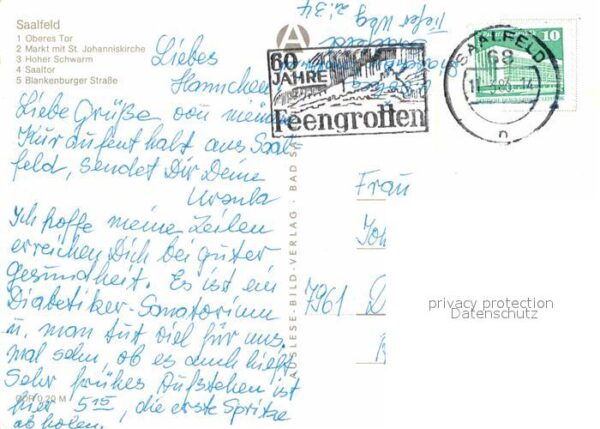 Saalfeld
1 Oberes Tor
2 Markt mit St. Johanniskirche
3 Hoher Schwarm
4 Saaltor
5 Blankenburger Straße
Liebes
Hannchen
Liebe Grüße von meinem
Kuraufenthalt aus Saal
feld, sendet Dir Deine
Ursula
Ich hoffe meine Zeilen
erreichen Dich bei guter
Gesundheit. Es ist ein
Diabetiker-Sanatorium
u. man tut viel für uns.
mal sehn, ob es auch hilft.
Sehr frühes Aufstehen ist
hier 5 15, die erste Spritze
abholen.
DDR 0,20 M
AUSLESE-BILD-VERLAG · BAD
Tiefer Weg
2.34
60
JAHRE
Feengrotten
SAALFELD
68
n
10
Frau
Joh
7961 D
privacy protection
Datenschutz